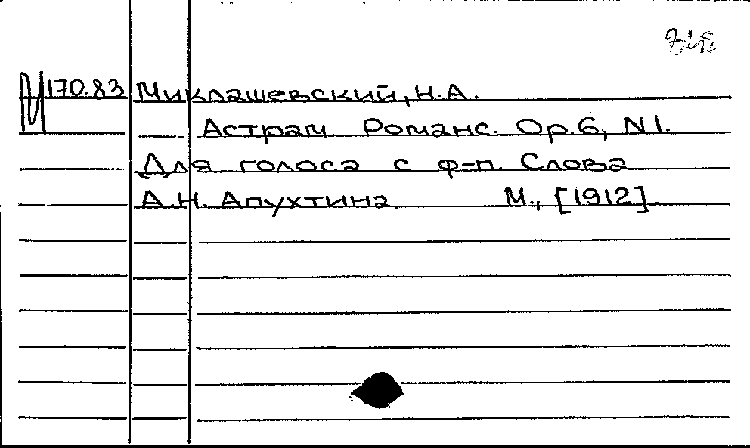 М170.83 Миклашевский, Н.А.
Астрам Романс. Ор.6, N1.
Для голоса с ф-п. Слова
А.Н. Апухтина М., [1912]